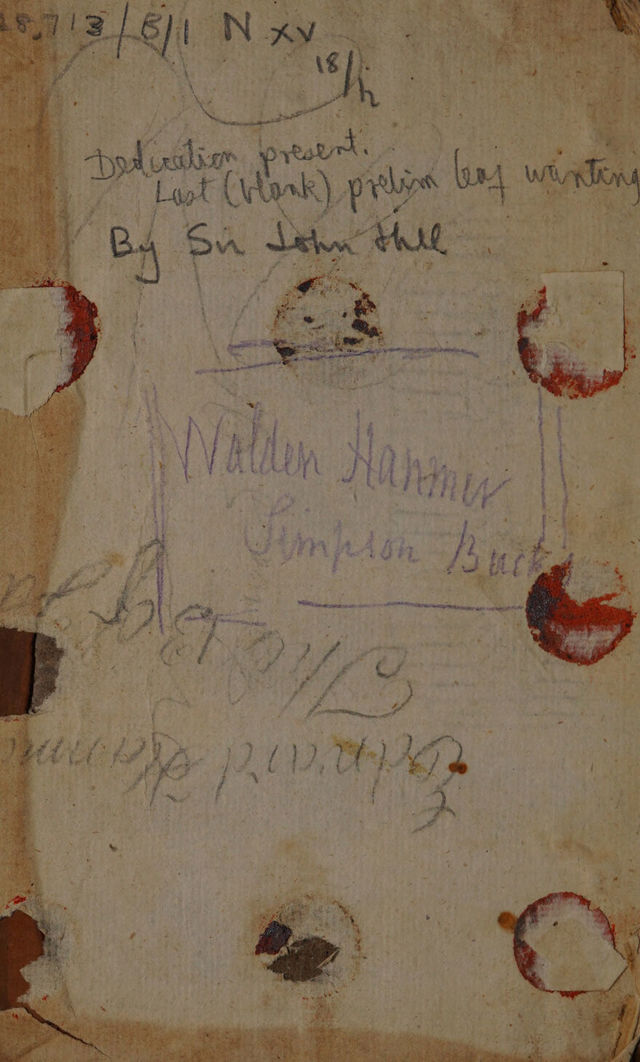 28,713/B/1 N xv
18/h
Dedication present.
Last (blank) prelim leaf wanting
By Sir John Hill
Walden Hanmer
Simpson Bucks
The
Edward Hanm